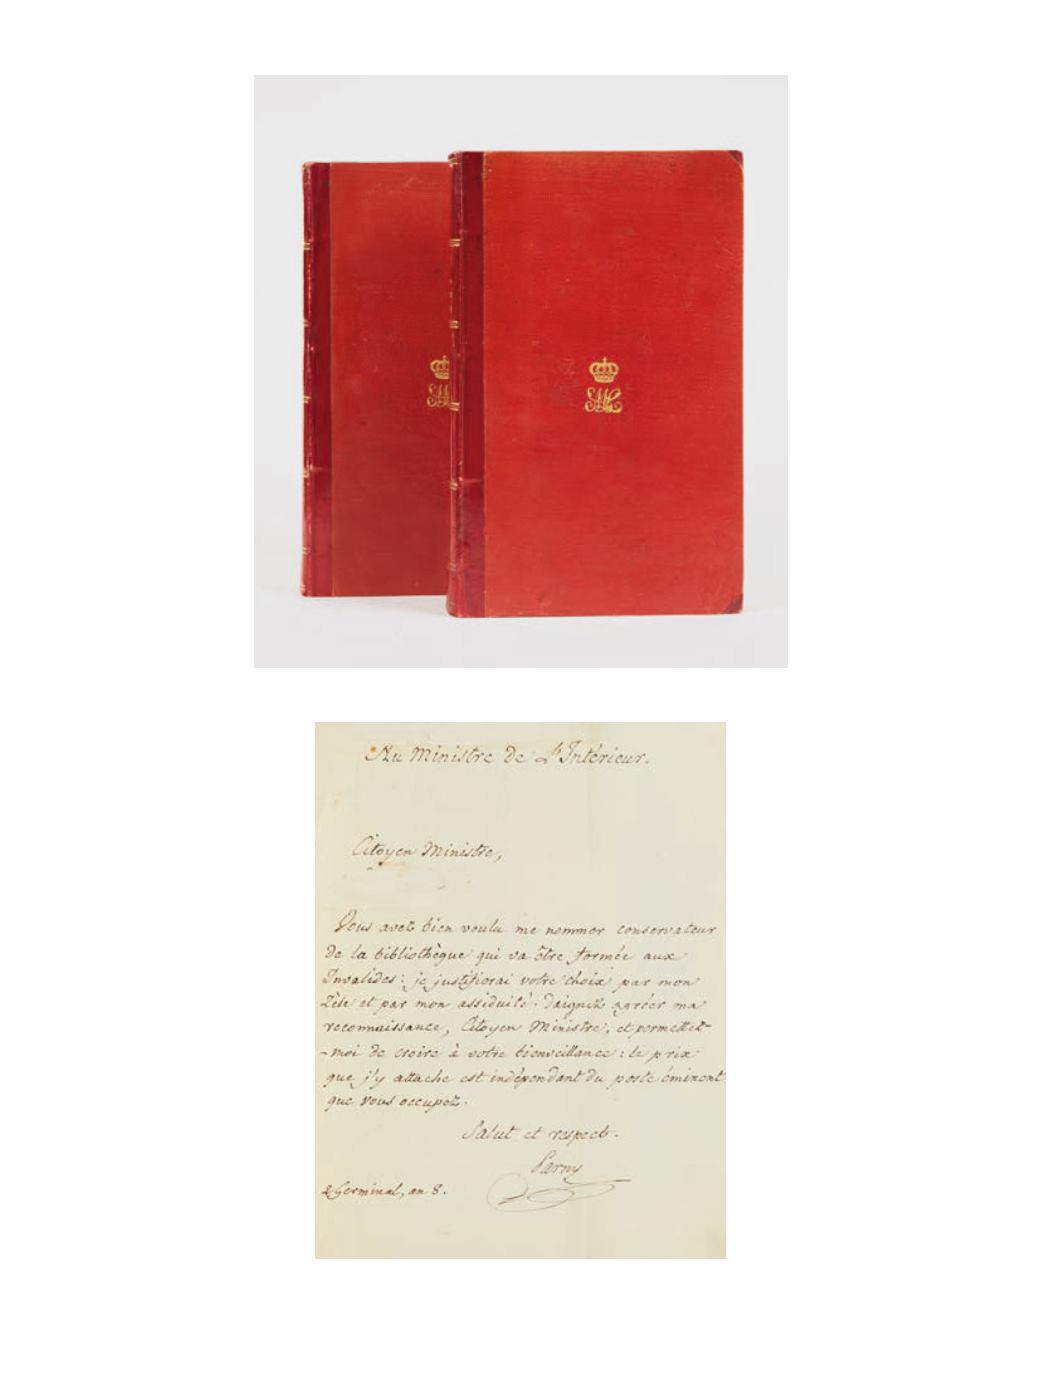 ML
Au Ministre de L'Intérieur.
Citoyen Ministre,
Vous avez bien voulu me nommer conservateur
de la bibliothèque qui va être formée aux
Invalides : je justifierai votre choix par mon
zèle et par mon assiduité. Daignez agréer ma
reconnaissance, Citoyen Ministre, et permettez-
-moi de croire à votre bienveillance : le prix
que j'y attache est indépendant du poste éminent
que vous occupez.
Salut et respect.
Parny
2 Germinal, an 8.